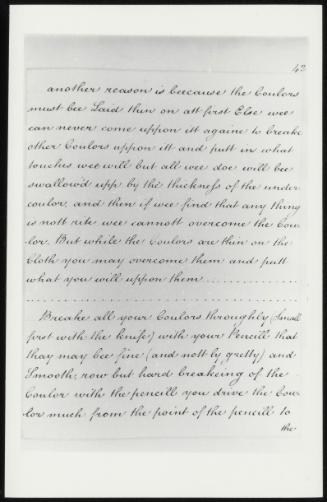 42
another reason is beecause the Coulors
must bee Laid thin on att first Else wee
can never come uppon itt againe to breake
other Coulors uppon itt and putt in what
touches wee will but all wee doe will bee
swallow'd upp by the thickness of the under
coulor, and then if wee find that any thing
is nott rite wee cannott overcome the Cou
lor. But while the Coulors are thin on the
Cloth you may overcome them and putt
what you will uppon them
Breake all your Coulors throughly (Small
first with the knife) with your Pencill that
thay may bee fine (and nott ly gretty) and
Smooth; row but hard breakeing of the
Coulor with the pencill you drive the Cou
lor much from the point of the pencill to
the